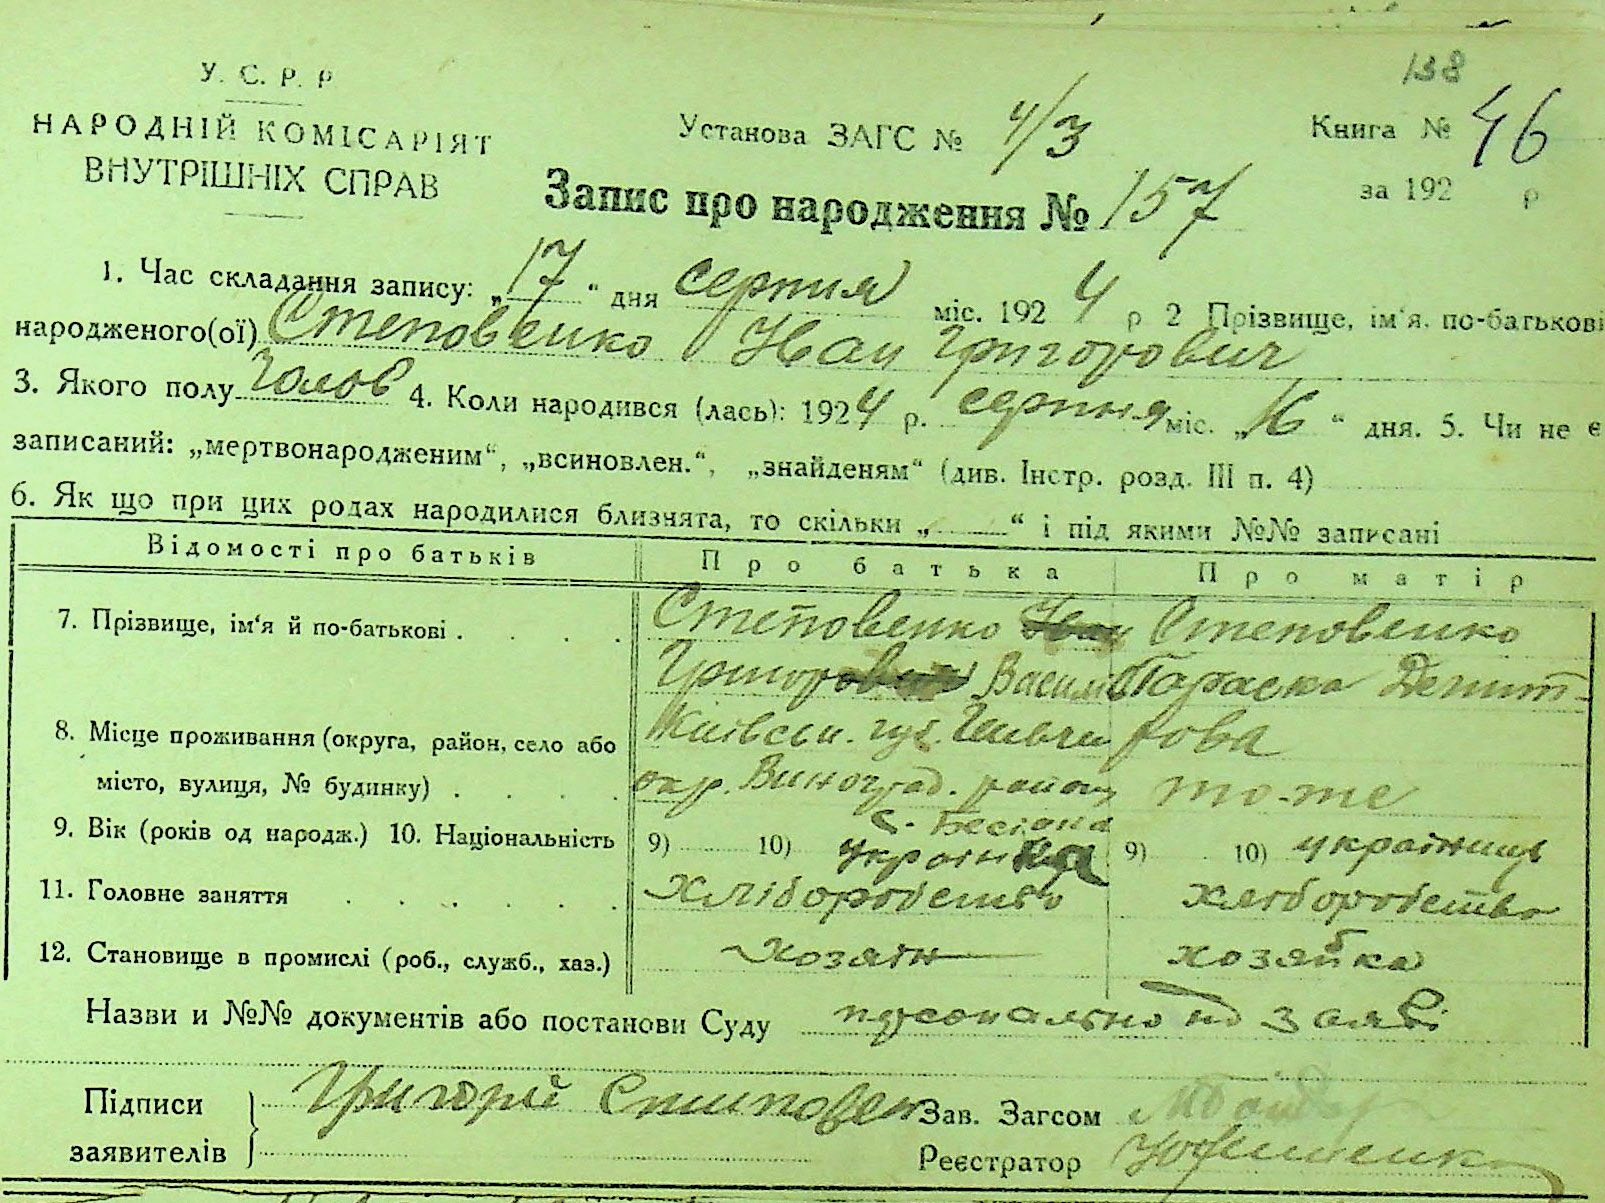 138
У. С. Р. Р
НАРОДНІЙ КОМІСАРІЯТ
ВНУТРІШНІХ СПРАВ
Установа ЗАГС № 4/3
Книга № 46
за 192 р
Запис про народження № 157
1. Час складання запису: „17“ дня серпня міс. 1924 р 2 Прізвище, ім'я, по-батькові
народженого(ої) Степовенко Іван Григорович
3. Якого полу чолов 4. Коли народився (лась): 1924 р. серпня міс. „16“ дня. 5. Чи не є
записаний: „мертвонародженим“, „всиновлен.“, „знайденям“ (див. Інстр. розд. III п. 4)
6. Як що при цих родах народилися близнята, то скільки „ “ і під якими №№ записані
Відомості про батьків Про батька Про матір
7. Прізвище, ім'я й по-батькові . . . . Степовенко Іван Степовенко
Григорович Васил Параска Дмит-
8. Місце проживання (округа, район, село або Київськ. губ. рова
місто, вулиця, № будинку) . . . . окр. Виноград. район то-же
9. Вік (років од народж.) 10. Національність 9) 10) українка 9) 10) українець
11. Головне заняття . . . . . . хліборобство хліборобство
12. Становище в промислі (роб., служб., хаз.) хозяїн хозяйка
Назви и №№ документів або постанови Суду персонально по заяві
Підписи
заявителів
Григорій Степовен
Зав. Загсом
Реєстратор